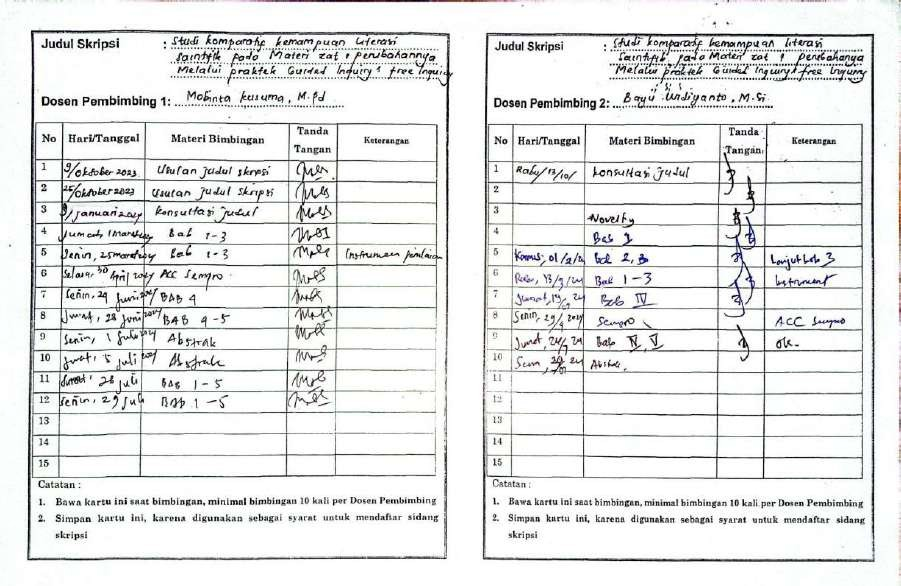 Judul Skripsi : Studi komparatif kemampuan literasi
saintifik pada Materi zat & perubahannya
Melalui praktek Guided Inquiry & free inquiry
Dosen Pembimbing 1: Mobinta kusuma, M.Pd
No Hari/Tanggal Materi Bimbingan Tanda Tangan Keterangan
1 9/Oktober 2023 Usulan judul skripsi
2 25/Oktober 2023 Usulan judul skripsi
3 9/januari 2024 konsultasi judul
4 Jumat, 1 maret Bab 1-3
5 Senin, 25 maret Bab 1-3 Instrumen penilaian
6 Selasa, 30 April 2024 ACC Sempro
7 Senin, 24 Juni 2024 BAB 4
8 Jumat, 28 Juni 2024 BAB 4-5
9 Senin, 1 Juli 2024 Abstrak
10 Jumat, 5 juli 2024 Abstrak
11 28 juli BAB 1-5
12 Senin, 29 Juli BAB 1-5
13
14
15
Catatan :
1. Bawa kartu ini saat bimbingan, minimal bimbingan 10 kali per Dosen Pembimbing
2. Simpan kartu ini, karena digunakan sebagai syarat untuk mendaftar sidang
skripsi
Judul Skripsi : Studi komparatif kemampuan literasi
saintifik pada Materi zat & perubahanya
Melalui praktek Guided Inquiry & free Inquiry
Dosen Pembimbing 2: Bayu Undiyanto, M.Si
No Hari/Tanggal Materi Bimbingan Tanda Tangan Keterangan
1 Rabu/ konsultasi judul
2
3 Novelty
4 Bab 1
5 Kamis, 01/2/24 Bab 2, 3 Lanjut bab 3
6 Rabu, 13/3/24 Bab 1-3 Instrument
7 Jumat, Bab IV
8 Senin, Sempro ACC Sempro
9 Jumat, Bab IV, V Ok.
10 Senin, Abstrak.
11
12
13
14
15
Catatan :
1. Bawa kartu ini saat bimbingan, minimal bimbingan 10 kali per Dosen Pembimbing
2. Simpan kartu ini, karena digunakan sebagai syarat untuk mendaftar sidang
skripsi